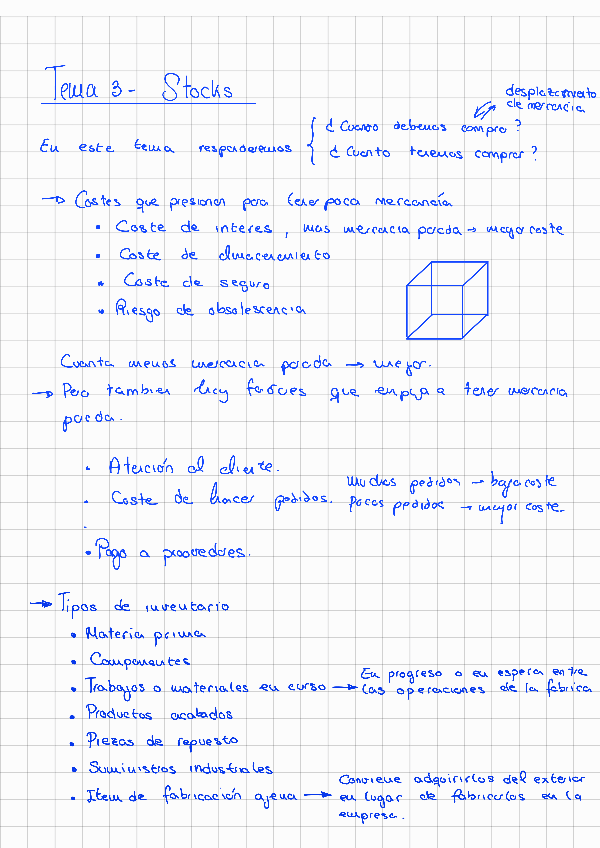 Tema 3 - Stocks
desplazamiento
de mercancia
¿Cuando debemos comprar?
En este tema responderemos
¿Cuanto tenemos comprar?
→ Costes que presionan para tener poca mercancía
• Coste de interes, mas mercacia parada → mayor coste
• Coste de almacenamiento
• Coste de seguro
• Riesgo de obsolescencia
Cuanta menos mercacia parada → mejor.
→ Pero tambien hay factores que empuja a tener mercacia
parada.
• Atención al cliente.
Muchos pedidos → bajo coste
• Coste de hacer pedidos. Pocos pedidos → mayor coste.
• Pago a proovedores.
→ Tipos de inventario
• Materia prima
• Componentes
En progreso o en espera entre
• Trabajos o materiales en curso → las operaciones de la fabrica
• Productos acabados
• Piezas de repuesto
• Suministros industriales
Conviene adquirirlos del exterior
• Item de fabricación ajena → en lugar de fabricarlos en la
empresa.